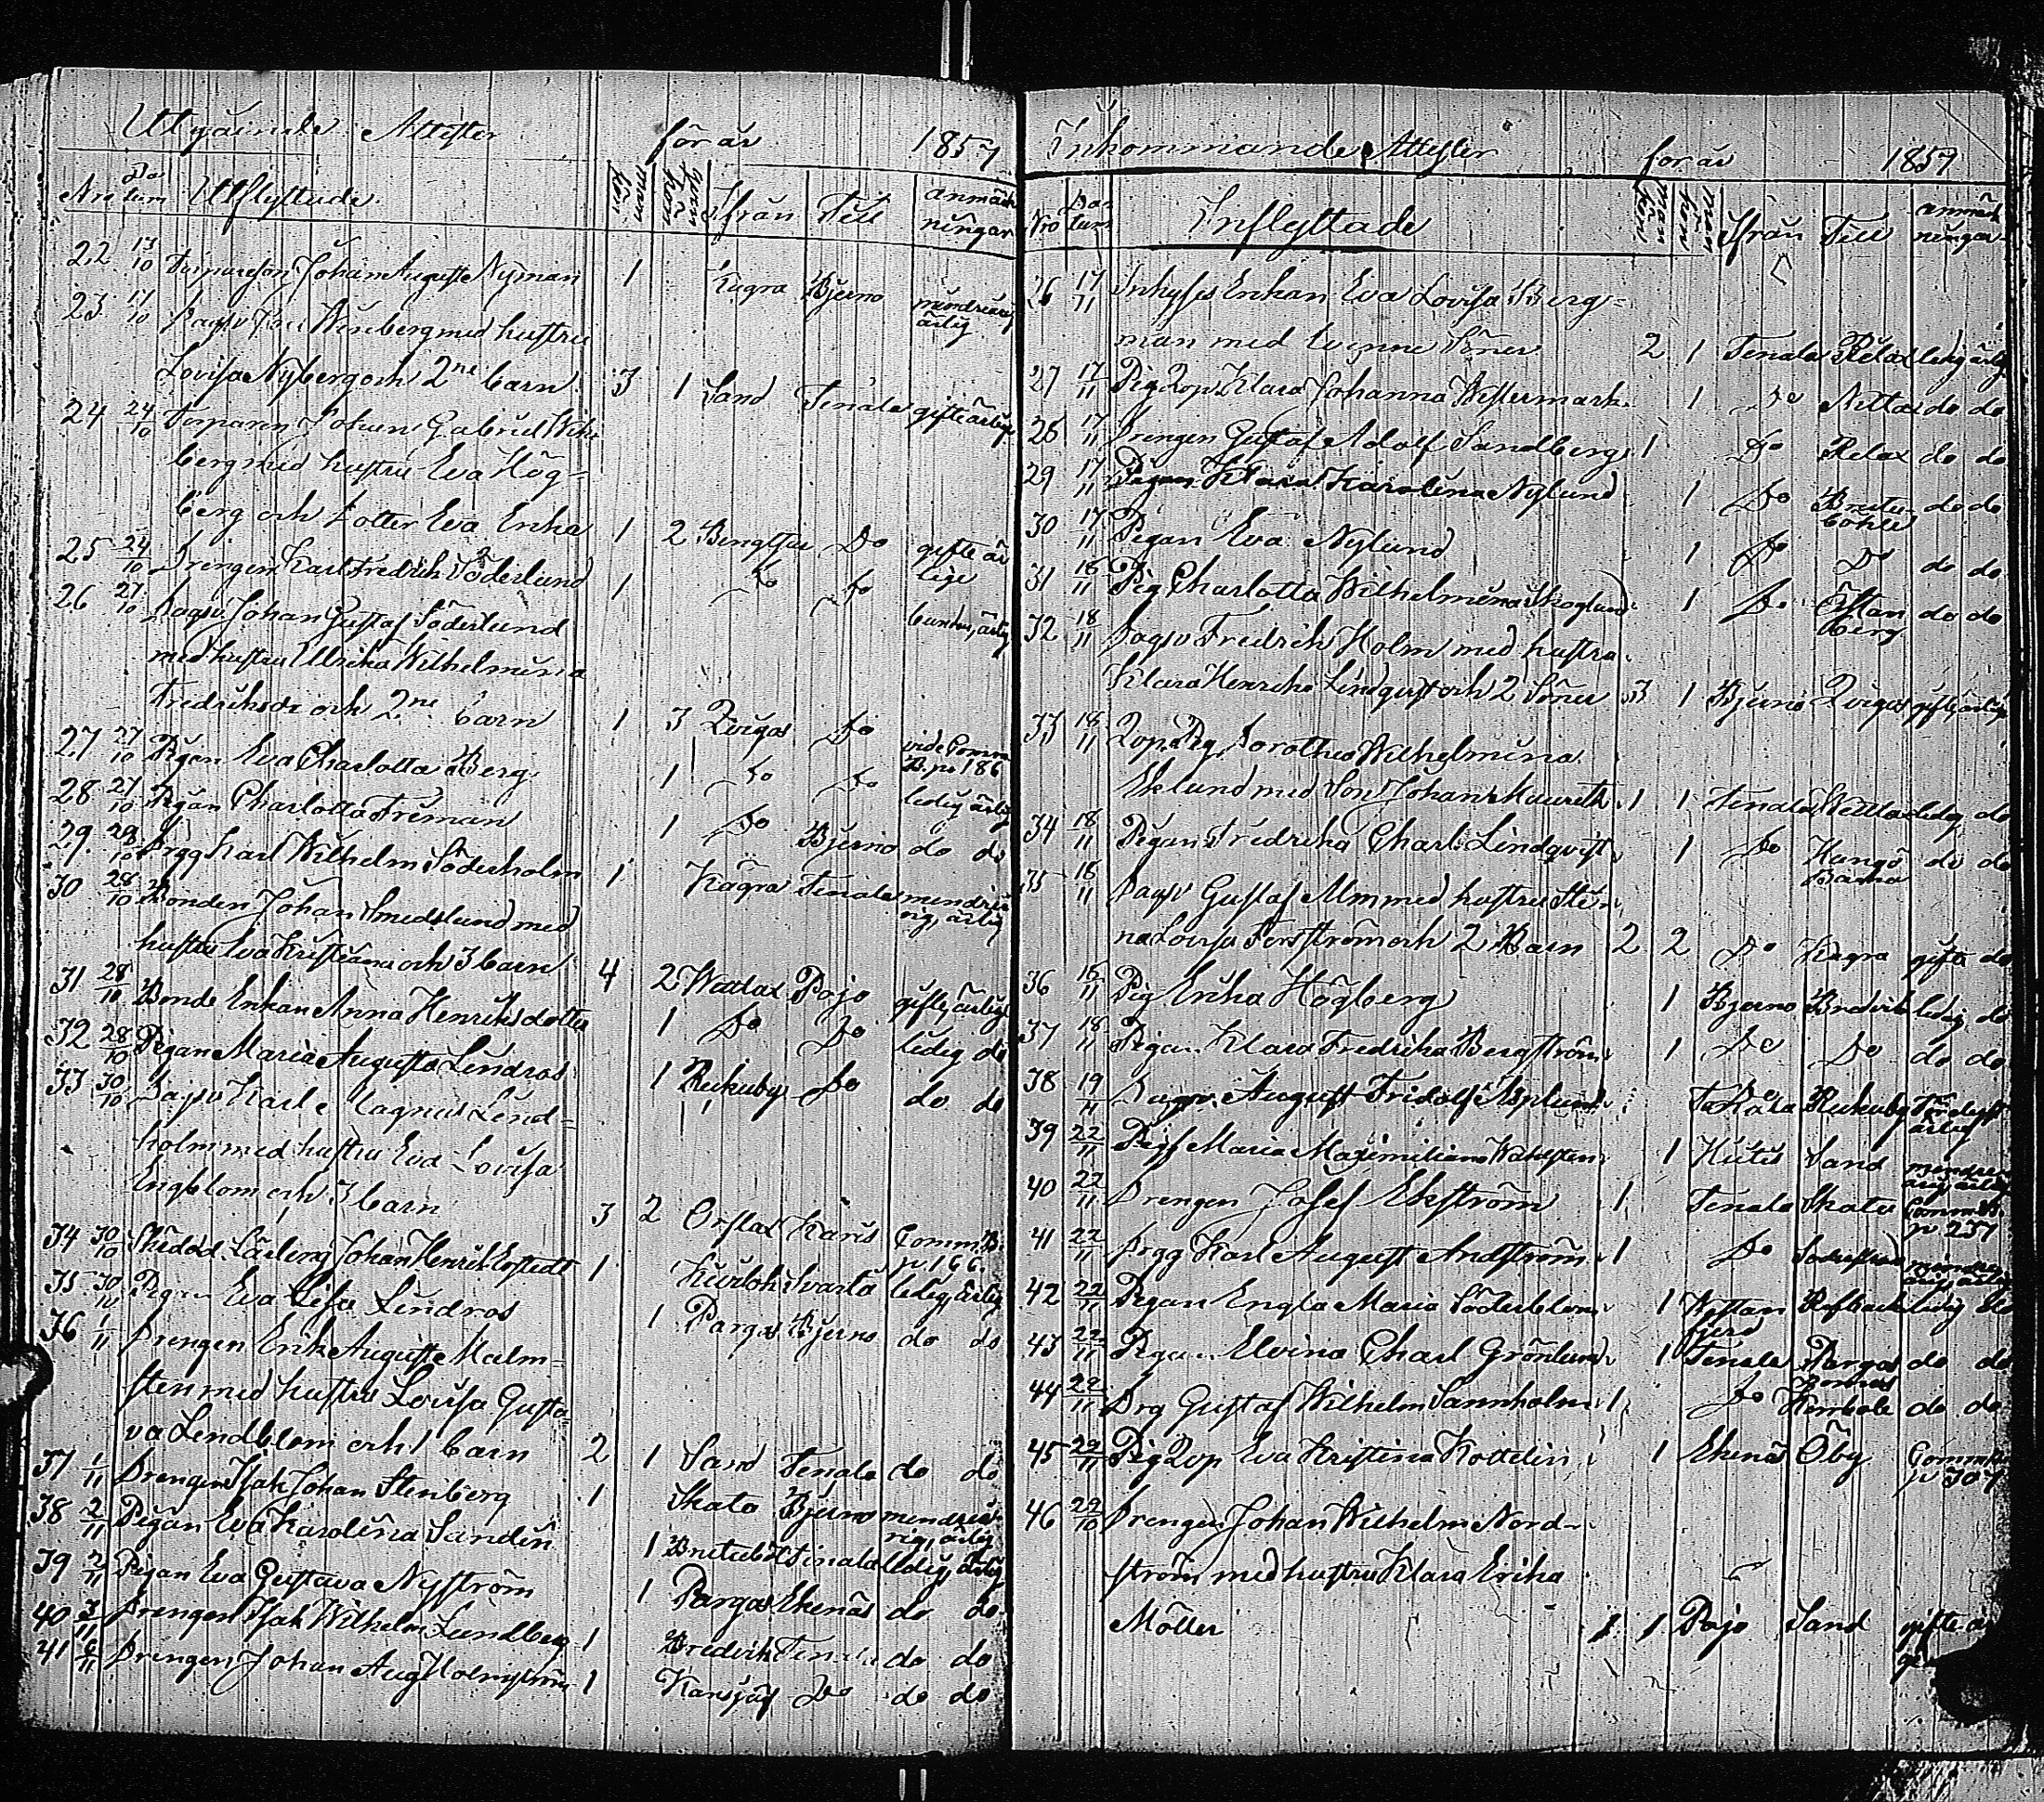 Utgående Attester för år 1857
Nro Datum Utflyttade man kön qvin kön Ifrån Till anmärkningar
22 13/10 Torpareson Johan August Nyman 1 Kugra Bjerno minderårig ärlig
23 17/10 Dagsv Joel Wireberg med hustru
Lovisa Nyberg och 2ne barn 3 1 Sand Tenala gifte ärlige
24 24/10 Torparen Johan Gabriel Wik
berg med hustru Eva Hög=
berg och dotter Eva Erika 1 2 Bengtsår Do gifte är lige
25 24/10 Drengen Karl Fredrik Söderlund 1 Do Do
26 27/10 Dagsv Johan Gustaf Söderlund
med hustru Ulrika Wilhelmina
Fredriksdr och 2ne barn 1 3 Qvigos Do vide Comm B. p. 186
27 27/10 Pigan Eva Charlotta Berg 1 Do Do ledig ärlig
28 27/10 Pigan Charlotta Friman 1 Do Bjerno do do
29. 28/10 Drgg Karl Wilhelm Söderholm 1 Kägra Tenala minderå rig, ärlig
30 28/10 Bonden Johan Smedslund med
hustru Eva Kristiana och 3 barn 4 2 Wättlax Pojo gifte, ärlige
31 28/10 Bonde Enkan Anna Henriksdotter 1 Do Do ledig do
32 28/10 Pigan Maria Augusta Lindros 1 Rukuby Do do do
33 30/10 Dagsv Karl Magnus Lind=
holm med hustru Eva Lovisa
Engblom och 3 barn 3 2 Orslax Karis Comm. B. p. 166.
34 30/10 Skrädd. Lärling Johan Henrik Löfstedt 1 Svarta ledig, ärlig
35 30/10 Pigan Eva Lisa Lindros 1 Pargas Bjerno do do
36 1/11 Drengen Erik August Malm=
sten med hustru Lovisa Gusta=
va Lindblom och 1 barn 2 1 Sand Tenala do do
37 1/11 Drengen Isak Johan Stenberg 1 Skata Bjerno minderå rig, ärlig
38 2/11 Pigan Eva Karolina Sandin 1 Tenala ledig, ärlig
39 2/11 Pigan Eva Gustava Nyström 1 Pargas Ekenäs do do
40 3/11 Drengen Isak Wilhelm Lundberg 1 Bredvik Tenala do do
41 6/11 Drengen Johan Aug Holmström 1 Kansjäf Do do do
Inkommande Attester för år 1857
Nro Datum Inflyttade man kön qvin kön Ifrån Till anmärkningar
26 17/11 Inhyses Enkan Eva Lovisa Berg=
man med tvenne Söner 2 1 Tenala Relax ledig ärlig
27 17/11 Pig Qop Klara Johanna Westermark 1 Do Nittax do do
28 17/11 Drengen Gustaf Adolf Sandberg 1 Do Relax do do
29 17/11 Pigan Klara Karolina Nylund 1 Do Brete böhle do do
30 17/11 Pigan Eva Nylund 1 Do Do do do
31 18/11 Pig Charlotta Wilhelmina Skoglund 1 Do Östan Berg do do
32 18/11 Dagsv Fredrik Holm med hustru
Klara Henrika Lindqvist och 2 Söner 3 1 Bjerno Qvigos gifte, ärlige
33 18/11 Qop. Pig. Dorothea Wilhelmina
Eklund med Son Johan Mauritz 1 1 Tenala Wättlax ledig do
34 18/11 Pigan Fredrika Charl. Lindqvist 1 Do Hangö do do
35 18/11 Dagsv Gustaf Alm med hustru Stin
na Lovisa Forsström och 2 Barn 2 2 Do Kugra gifte do
36 18/11 Pig Erika Högberg 1 Bjerno Bredvik ledig do
37 18/11 Pigan Klara Fredrika Bergström 1 Do Do do do
38 19/11 Dagsv. August Fridolf Asplund Rukuby
39 22/11 Pig Maria Maximiliana Wahlsten 1 Kutis Sand minder årig, ärlig
40 22/11 Drengen Josef Ekström 1 Tenala Skata Comm. B. p 257
41 22/11 Drgg Karl August Andström 1 Do minder årig, ärlig
42 22/11 Pigan Engla Maria Söderblom 1 Westan fjerd Rosback ledig do
43 22/11 Pigan Elvina Charl Grönlund 1 Tenala Pargas do do
44 22/11 Drg Gustaf Wilhelm Sannholm 1 Do do do
45 22/11 Pig Qop Eva Kristina Kottelin 1 Ekenäs Öby Commb p 307
46 22/10 Drengen Johan Wilhelm Nord=
ström med hustru Klara Erika
Möller 1 1 Pojo Sand gifte